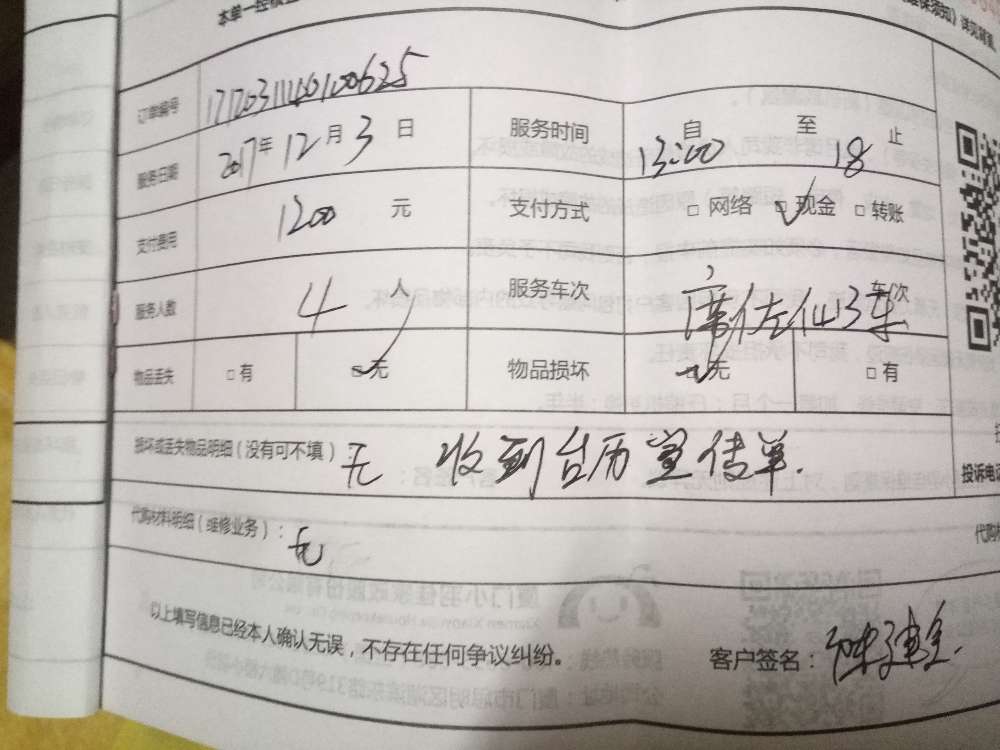 订单编号 1712031140100625
服务日期 2017年 12月 3日 服务时间 自 13:00 至 18 止
支付费用 1200 元 支付方式 □ 网络 □ 现金 □ 转账
服务人数 4 人 服务车次 车次
物品丢失 □ 有 □ 无 物品损坏 □ 无 □ 有
损坏或丢失物品明细(没有可不填) 无 收到台历宣传单.
投诉电话
代购材料明细(维修业务): 无
以上填写信息已经本人确认无误,不存在任何争议纠纷。 客户签名: